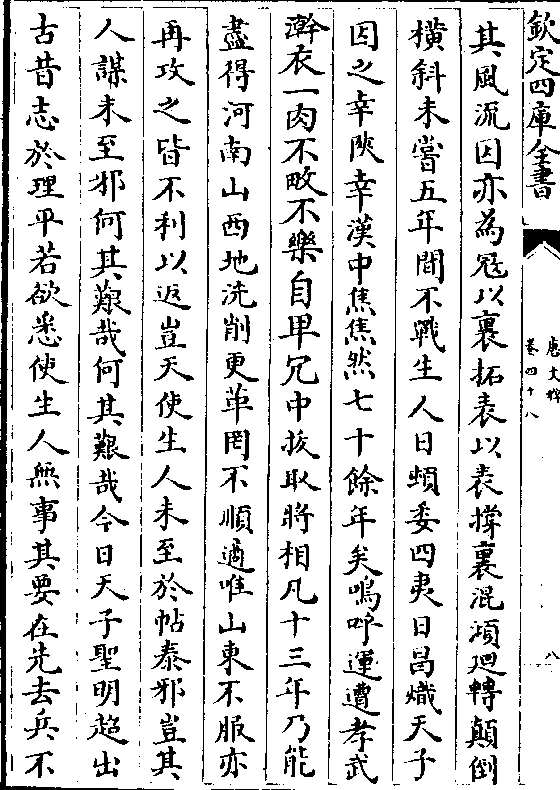 欽定四庫全書
唐文粹
卷四十八
八
其風流因亦為冦以裏拓表以表撐裏混澒廻轉顛倒
橫斜未嘗五年間不戰生人日頓委四夷日昌熾天子
因之幸陜幸漢中焦焦然七十餘年矣嗚呼運遭孝武
澣衣一肉不畋不樂自卑冗中拔取將相凡十三年乃能
盡得河南山西地洗削更革罔不順適唯山東不服亦
再攻之皆不利以返豈天使生人未至於帖泰邪豈其
人謀未至邪何其艱哉何其艱哉今日天子聖明超出
古昔志於理平若欲悉使生人無事其要在先去兵不